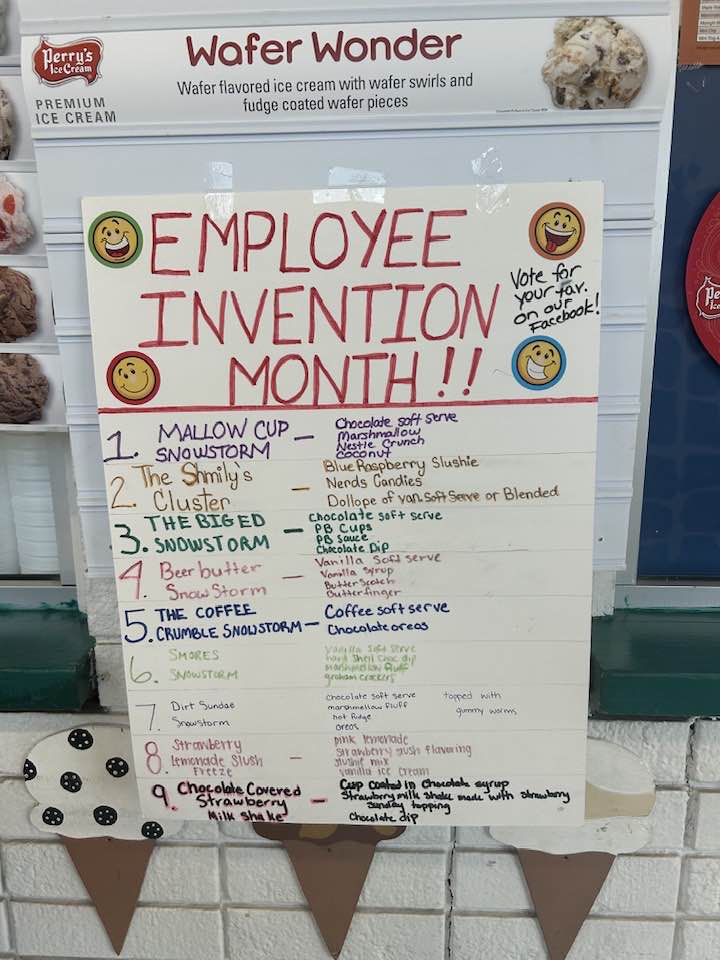 Perry's
Ice Cream
PREMIUM
ICE CREAM
Wafer Wonder
Wafer flavored ice cream with wafer swirls and
fudge coated wafer pieces
EMPLOYEE
INVENTION
MONTH!!
Vote for
your fav.
on our
Facebook!
1. MALLOW CUP
SNOWSTORM -
Chocolate soft serve
Marshmallow
Nestle Crunch
coconut
2. The Shmily's
Cluster -
Blue Raspberry Slushie
Nerds Candies
Dollope of van. soft serve or Blended
3. THE BIG ED
SNOWSTORM -
Chocolate soft serve
PB Cups
PB Sauce
Chocolate Dip
4. Beerbutter
Snow Storm -
Vanilla Soft serve
Vanilla Syrup
ButterScotch
Butterfinger
5. THE COFFEE
CRUMBLE SNOWSTORM -
Coffee soft serve
Chocolate oreos
6. SMORES
SNOWSTORM
Vanilla Soft Serve
hard shell choc dip
marshmellow fluff
graham crackers
7. Dirt Sundae
Snowstorm
Chocolate soft serve
marshmellow fluff
hot fudge
oreos
topped with
gummy worms
8. Strawberry
Lemonade Slush
Freeze -
pink lemonade
strawberry slush flavoring
slushie mix
vanilla ice cream
9. Chocolate Covered
Strawberry
Milk Shake -
Cup coated in chocolate syrup
Strawberry milk shake made with strawberry
Sunday topping
Chocolate dip